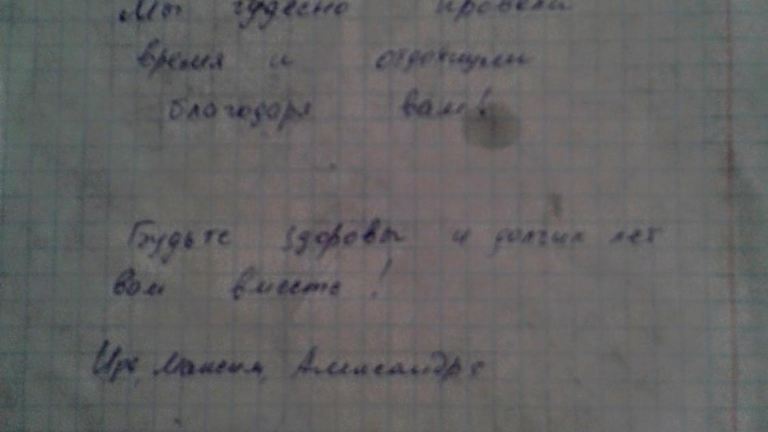 Мы чудесно провели
время и отдохнули
благодаря вам!
Будьте здоровы и долгих лет
вам вместе!
Ира, Максим, Александра